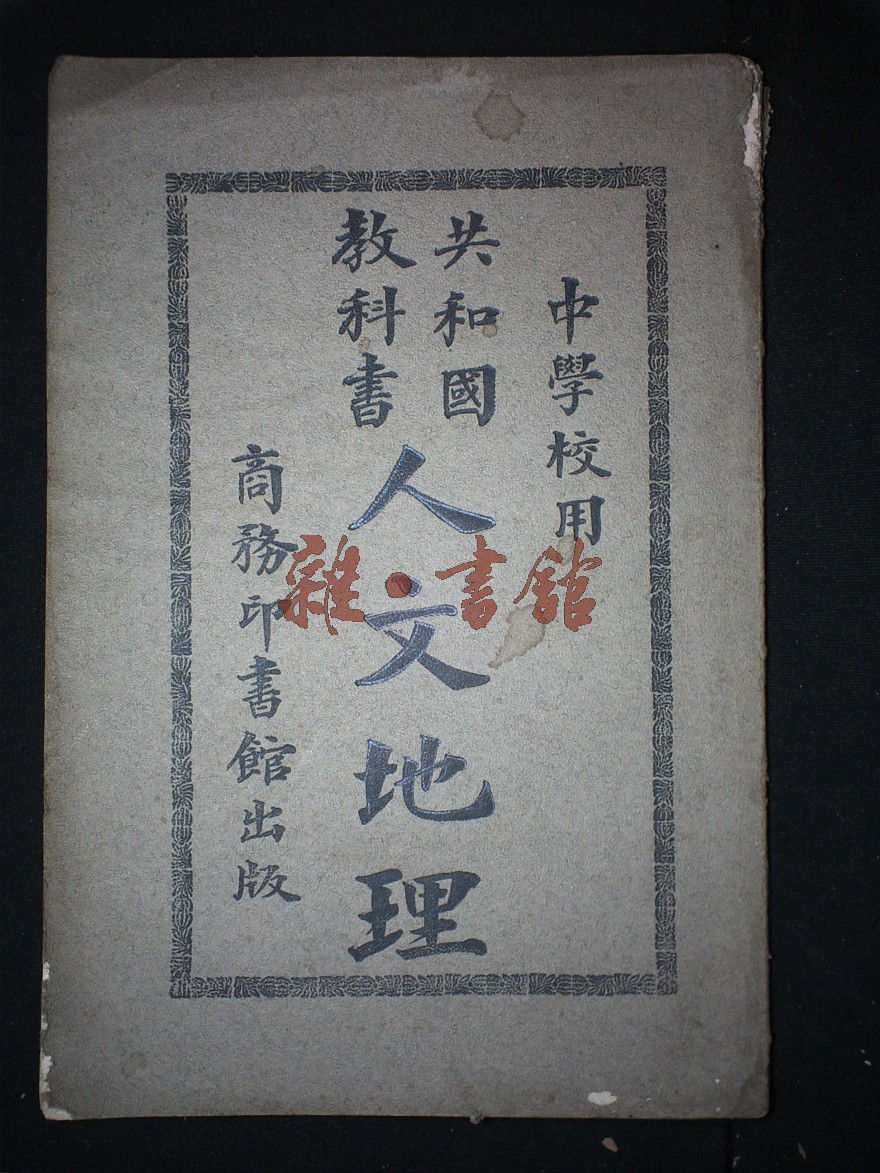 中學校用
共和國
教科書
人文地理
商務印書館出版
雜·書館